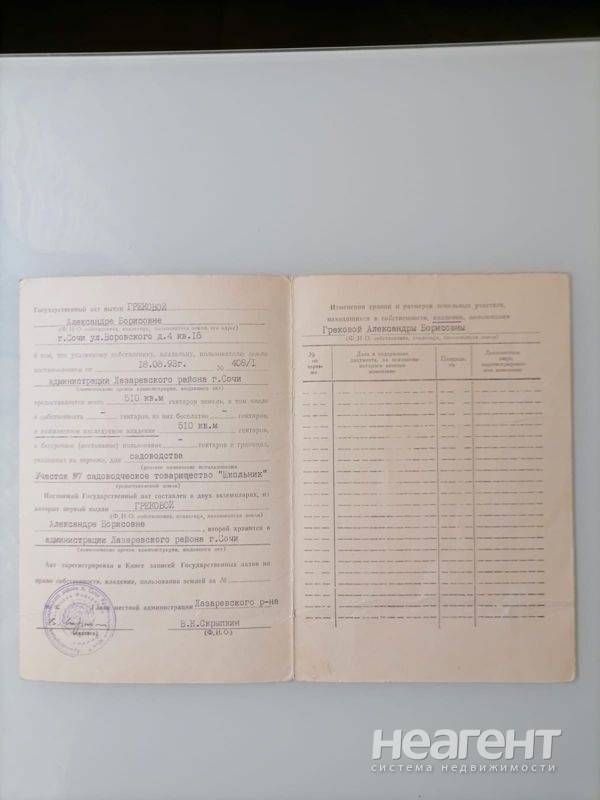 Государственный акт выдан ГРЕКОВОЙ
Александре Борисовне
(Ф.И.О. собственника, владельца, пользователя земли, его адрес)
г.Сочи ул.Воровского д.4 кв.16
в том, что указанному собственнику, владельцу, пользователю земли
постановлением от 18.08.93г. № 408/1
администрации Лазаревского района г.Сочи
(наименование органа администрации, выдавшего акт)
предоставляется всего 510 кв.м гектаров земель, в том числе
в собственность – гектаров, из них бесплатно – гектаров,
в пожизненное наследуемое владение 510 кв.м гектаров,
в бессрочное (постоянное) пользование – гектаров в границах,
указанных на чертеже, для садоводства
(целевое назначение использования
Участок №7 садоводческое товарищество "Школьник"
предоставляемой земли)
Настоящий Государственный акт составлен в двух экземплярах, из
которых первый выдан ГРЕКОВОЙ
(Ф.И.О. собственника, владельца, пользователя земли)
Александре Борисовне , второй хранится в
администрации Лазаревского района г.Сочи
(наименование органа администрации, выдавшего акт)
Акт зарегистрирован в Книге записей Государственных актов на
право собственности, владения, пользования землей за №
Глава местной администрации Лазаревского р-на
В.К.Скрыпкин
(подпись) (Ф.И.О.)
Изменения границ и размеров земельных участков,
находящихся в собственности, владении, пользовании
Грековой Александры Борисовны
(Ф.И.О. собственника, владельца, пользователя земли)
№
на чертеже
Дата и содержание документа, на основании которого внесены изменения
Площадь, га
неагент
система недвижимости